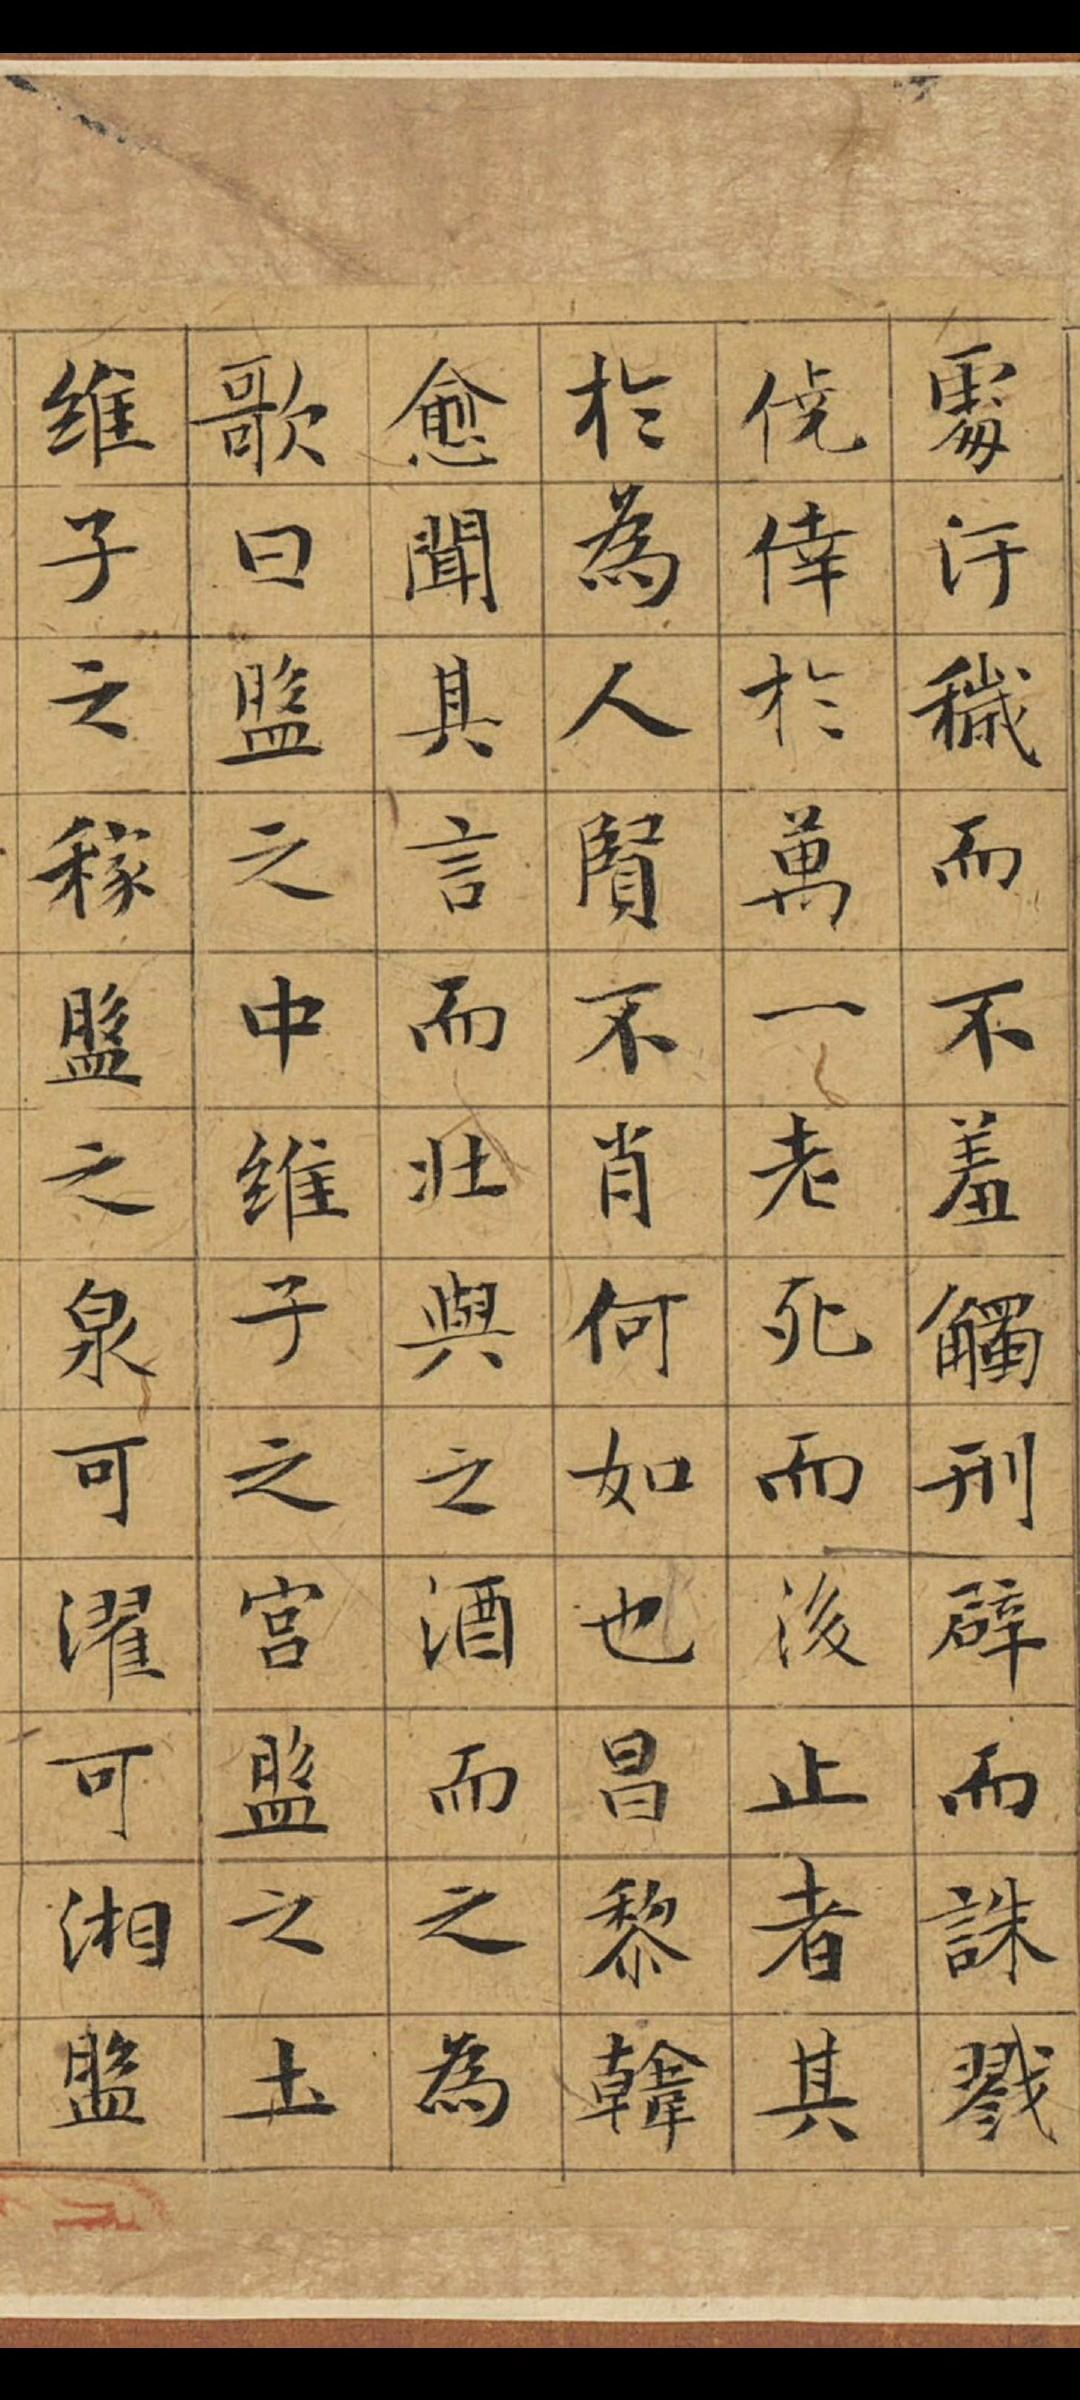 處汙穢而不羞觸刑辟而誅戮
僥倖於萬一老死而後止者其
於為人賢不肖何如也昌黎韓
愈聞其言而壯與之酒而之為
歌曰盤之中維子之宮盤之土
維子之稼盤之泉可濯可湘盤